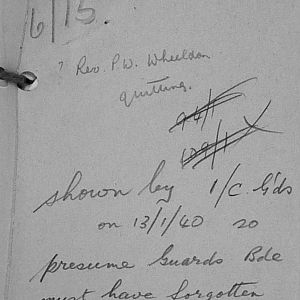 6/15.
? Rev. P.W. Wheeldon
quitting.
94/1
129/1
shown by 1/C. Gds
on 13/1/40 20
presume Guards Bde
must have forgotten